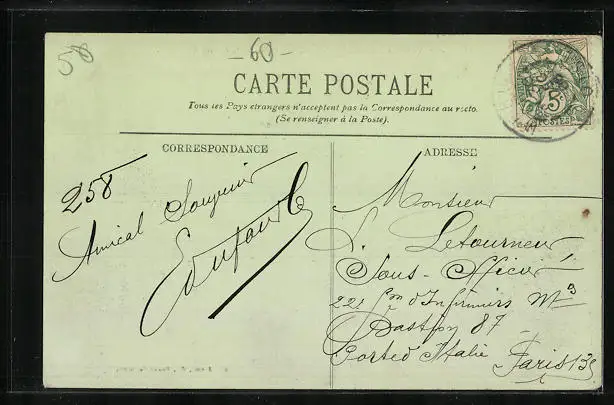 58
- 60 -
CARTE POSTALE
Tous les Pays etrangers n'acceptent pas la Correspondance au recto.
(Se renseigner à la Poste).
CORRESPONDANCE
ADRESSE
258
Amical Souvenir
Monsieur
L. Letourneur
Sous-Officier
22e Son d'Infirmiers Mres
Bastion 87
Porte d'Italie Paris 13e
5
POSTES